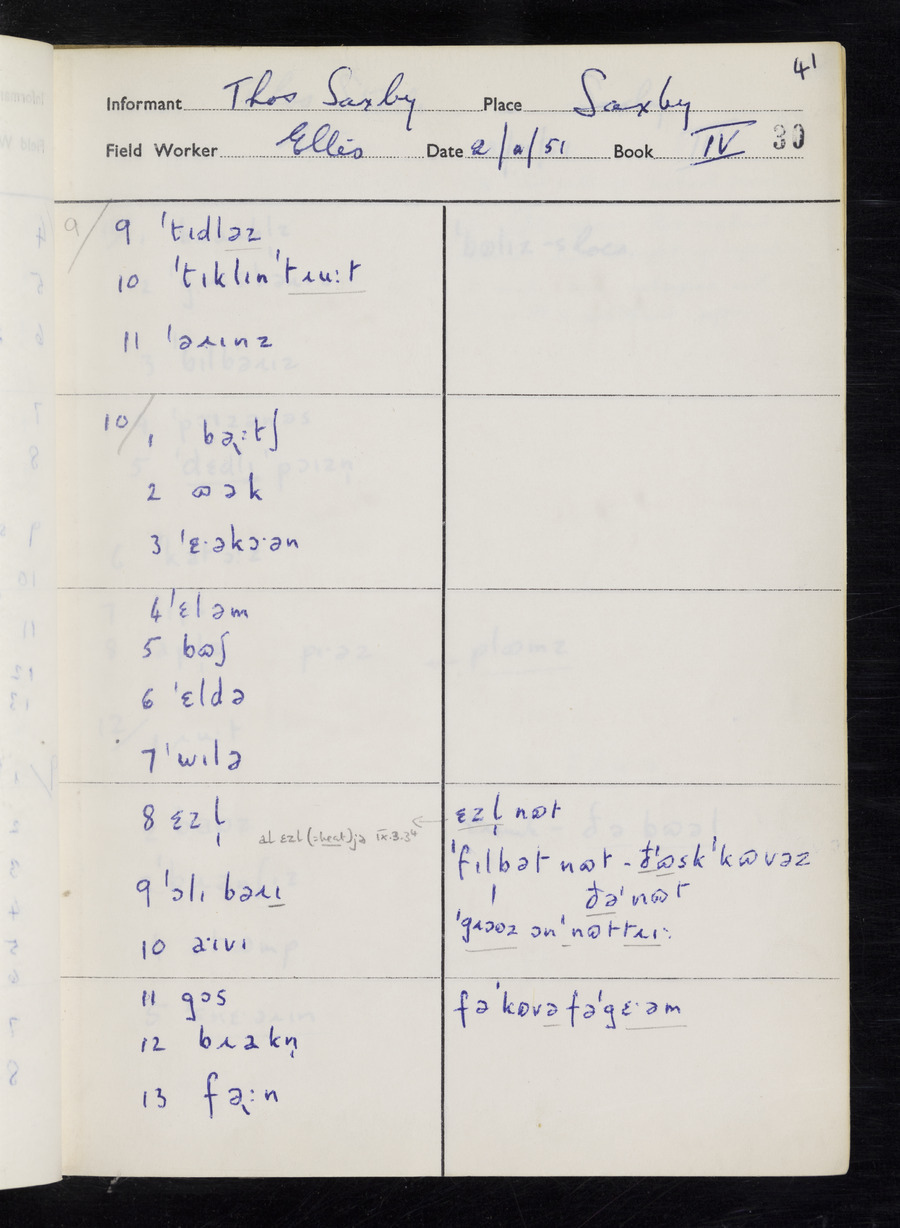 41
Informant Thos Saxby Place Saxby
Field Worker Ellis Date 2/a/51 Book IV 30
9/ 9 ˈtɪdləz
10 ˈtɪklɪnˈtɹɩu:t
11 ˈəɹɪnz
10/ 1 bəʴ:tʃ
2 ɷək
3 ˈɛ·əkɔ·ən
4 ˈɛləm
5 bɷʃ
6 ˈɛldə
7 ˈwɪlə
8 ɛzl̩
al ɛzl (=heat) jə IX.3.3⁴
ɛzl̩ nɷt
ˈfɪlbət nɷt - ðˈɷskˈkɷvəz
9 ˈɔlɪ bəɹɪ
ðəˈnɷt
ˈgɹɔɷz ɔnˈnɷttɹɪ:
10 a·ɪvɪ
11 gɔs
fəˈkɷvə fəˈgɛ·əm
12 bɹakn̩
13 fəʴ:n